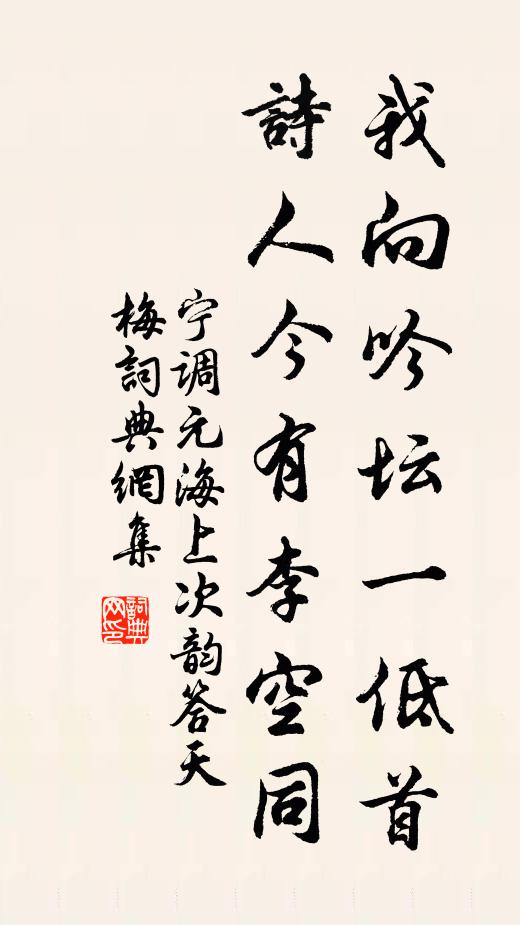 我向吟坛一低首
詩人今有李空同
宁调元海上次韵答天
梅詞典網集
詞典网印